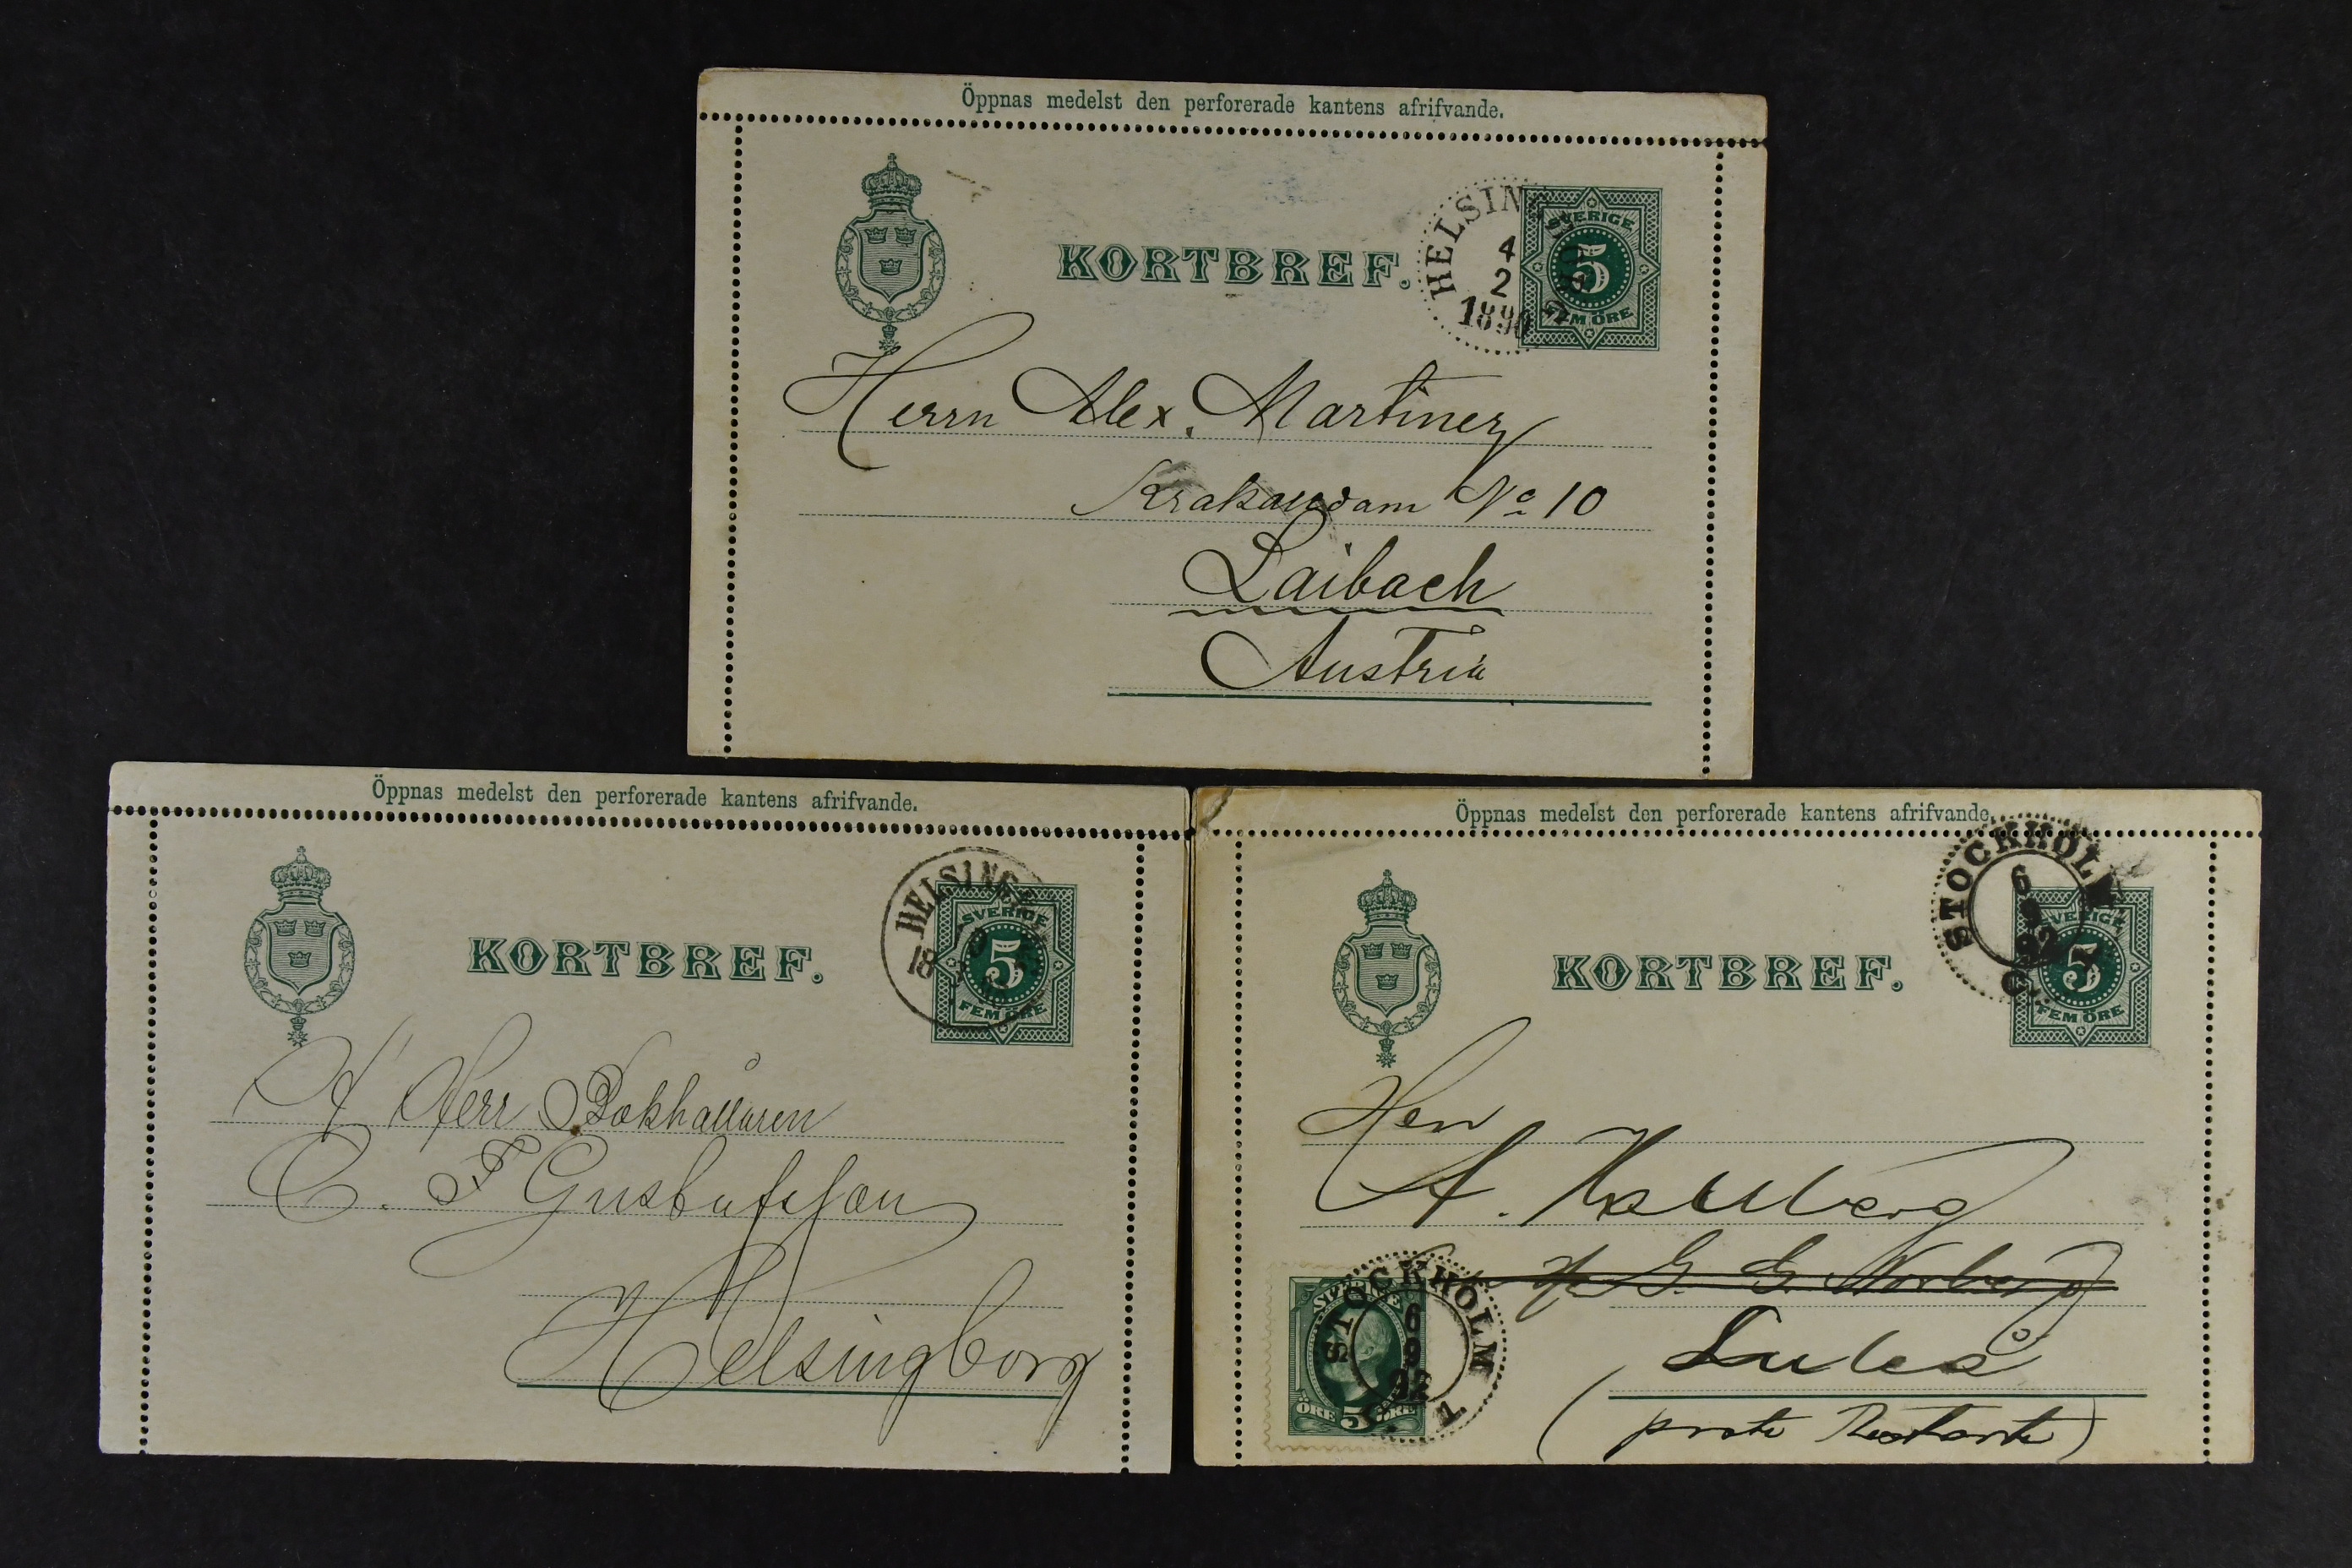 Öppnas medelst den perforerade kantens afrifvande.
KORTBREF.
HELSIN
4
2
1890
SVERIGE
5
FEM ÖRE
Herrn Alex. Martinez
Krakaudam No 10
Laibach
Austria
Öppnas medelst den perforerade kantens afrifvande.
KORTBREF.
HELSING
18
SVERIGE
5
FEM ÖRE
Herr Bokhållaren
C. F Gustafsson
Helsingborg
Öppnas medelst den perforerade kantens afrifvande.
KORTBREF.
STOCKHOLM
6
9
92
C.
SVERIGE
5
FEM ÖRE
Herr
A.
G. G. Norberg
Luleå
(poste Restante)
STOCKHOLM
6
9
92
SVERIGE
ÖRE 5 ÖRE